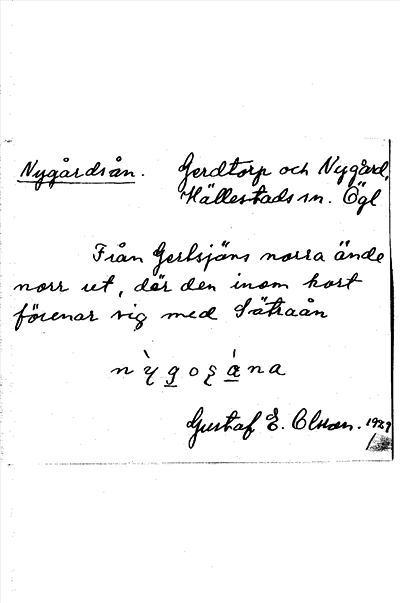 Nygårdsån. Gerdtorp och Nygård,
Hällestads sn. Ögl
Från Gerlsjöns norra ände
norr ut, där den inom kort
förenar sig med Sätraån
Gustaf E. Olson. 1929